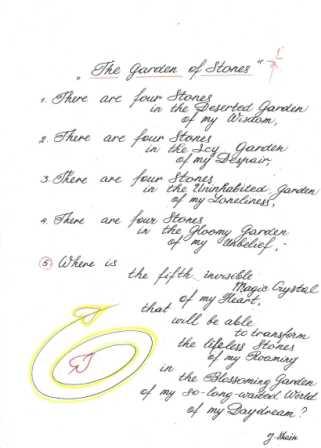 „The Garden of Stones"
1. There are four Stones
in the Deserted Garden
of my Wisdom,
2. There are four Stones
in the Icy Garden
of my Despair,
3. There are four Stones
in the Uninhabited Garden
of my Loneliness,
4. There are four Stones
in the Gloomy Garden
of my Unbelief, -
5 Where is
the fifth invisible
Magic Crystal
of my Heart,
that
will be able
to transform
the lifeless Stones
of my Roaming
in
the Blossoming Garden
of my so-long-waited World
of my Daydream?